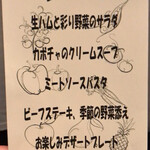 生ハムと彩り野菜のサラダ
カボチャのクリームスープ
ミートソースパスタ
ビーフステーキ、季節の野菜添え
お楽しみデザートプレート